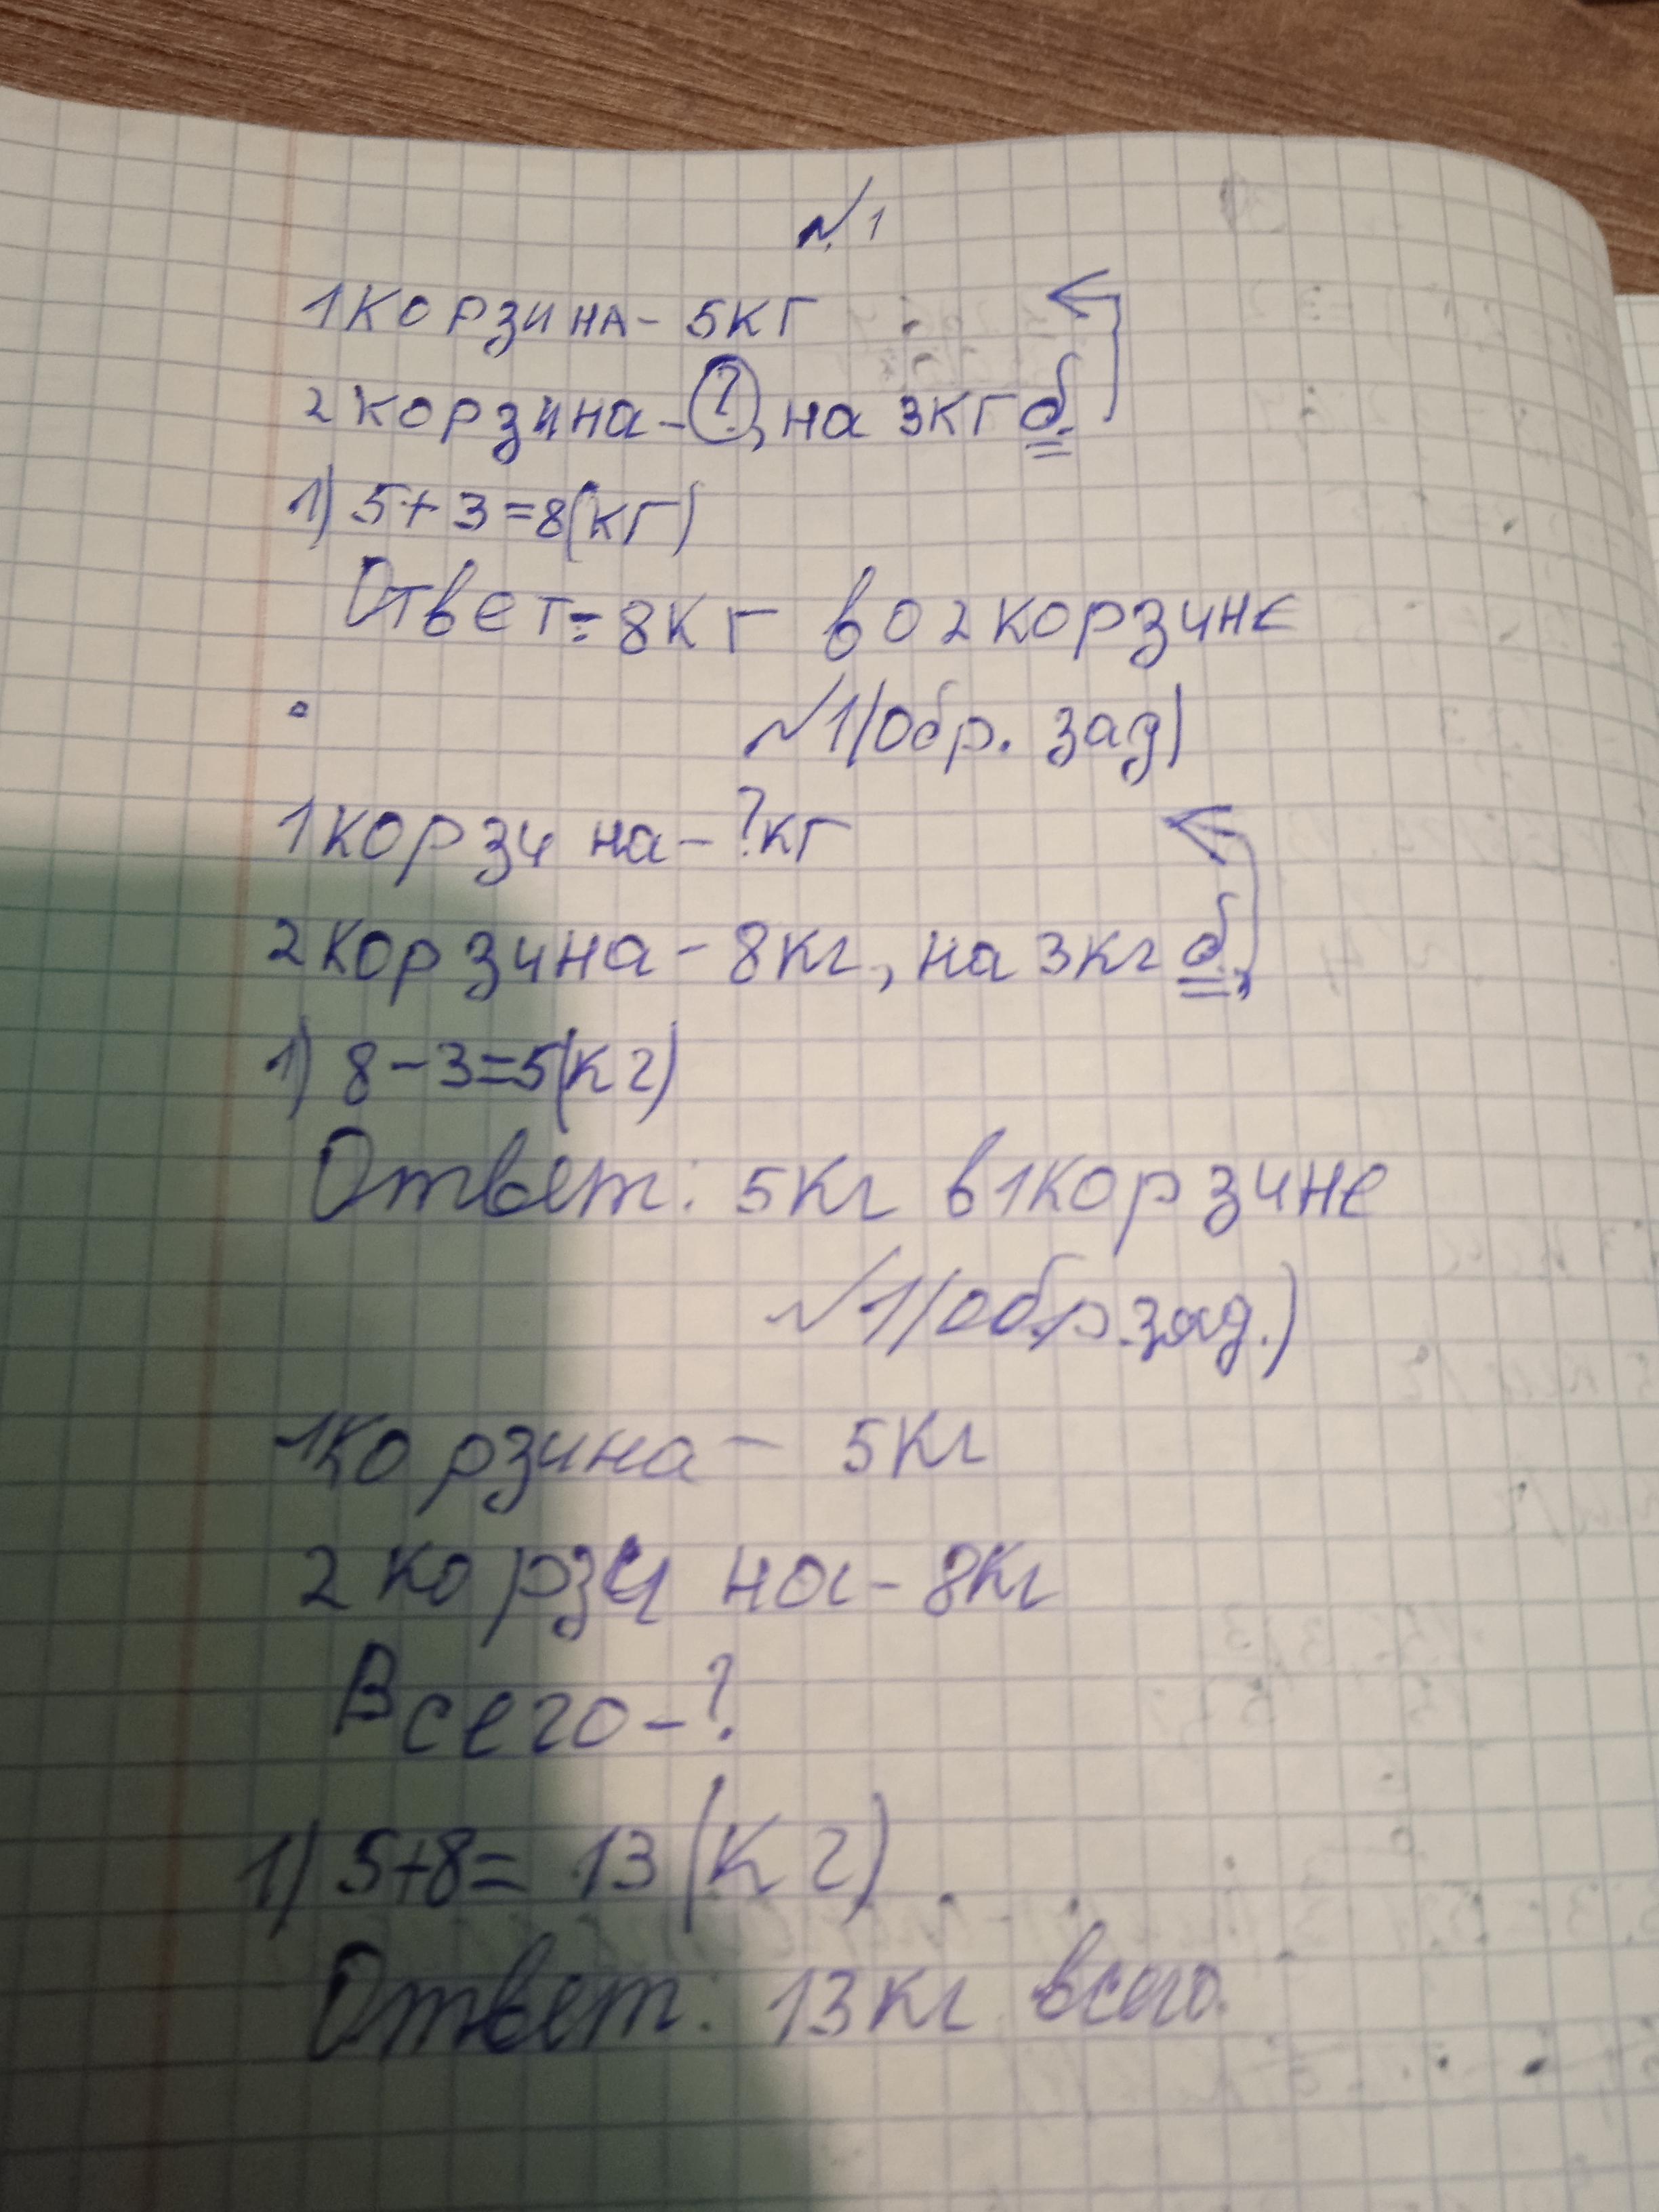 №1
1 корзина - 5кг
2 корзина - ?, на 3кг б.
1) 5+3=8(кг)
Ответ: 8кг во 2 корзине
№1(обр. зад)
1 корзина - ?кг
2 корзина - 8кг, на 3кг б.,
1) 8-3=5(кг)
Ответ: 5кг в 1 корзине
№1(обр.зад.)
1 корзина - 5кг
2 корзина - 8кг
Всего - ?
1) 5+8= 13(кг)
Ответ: 13кг всего.